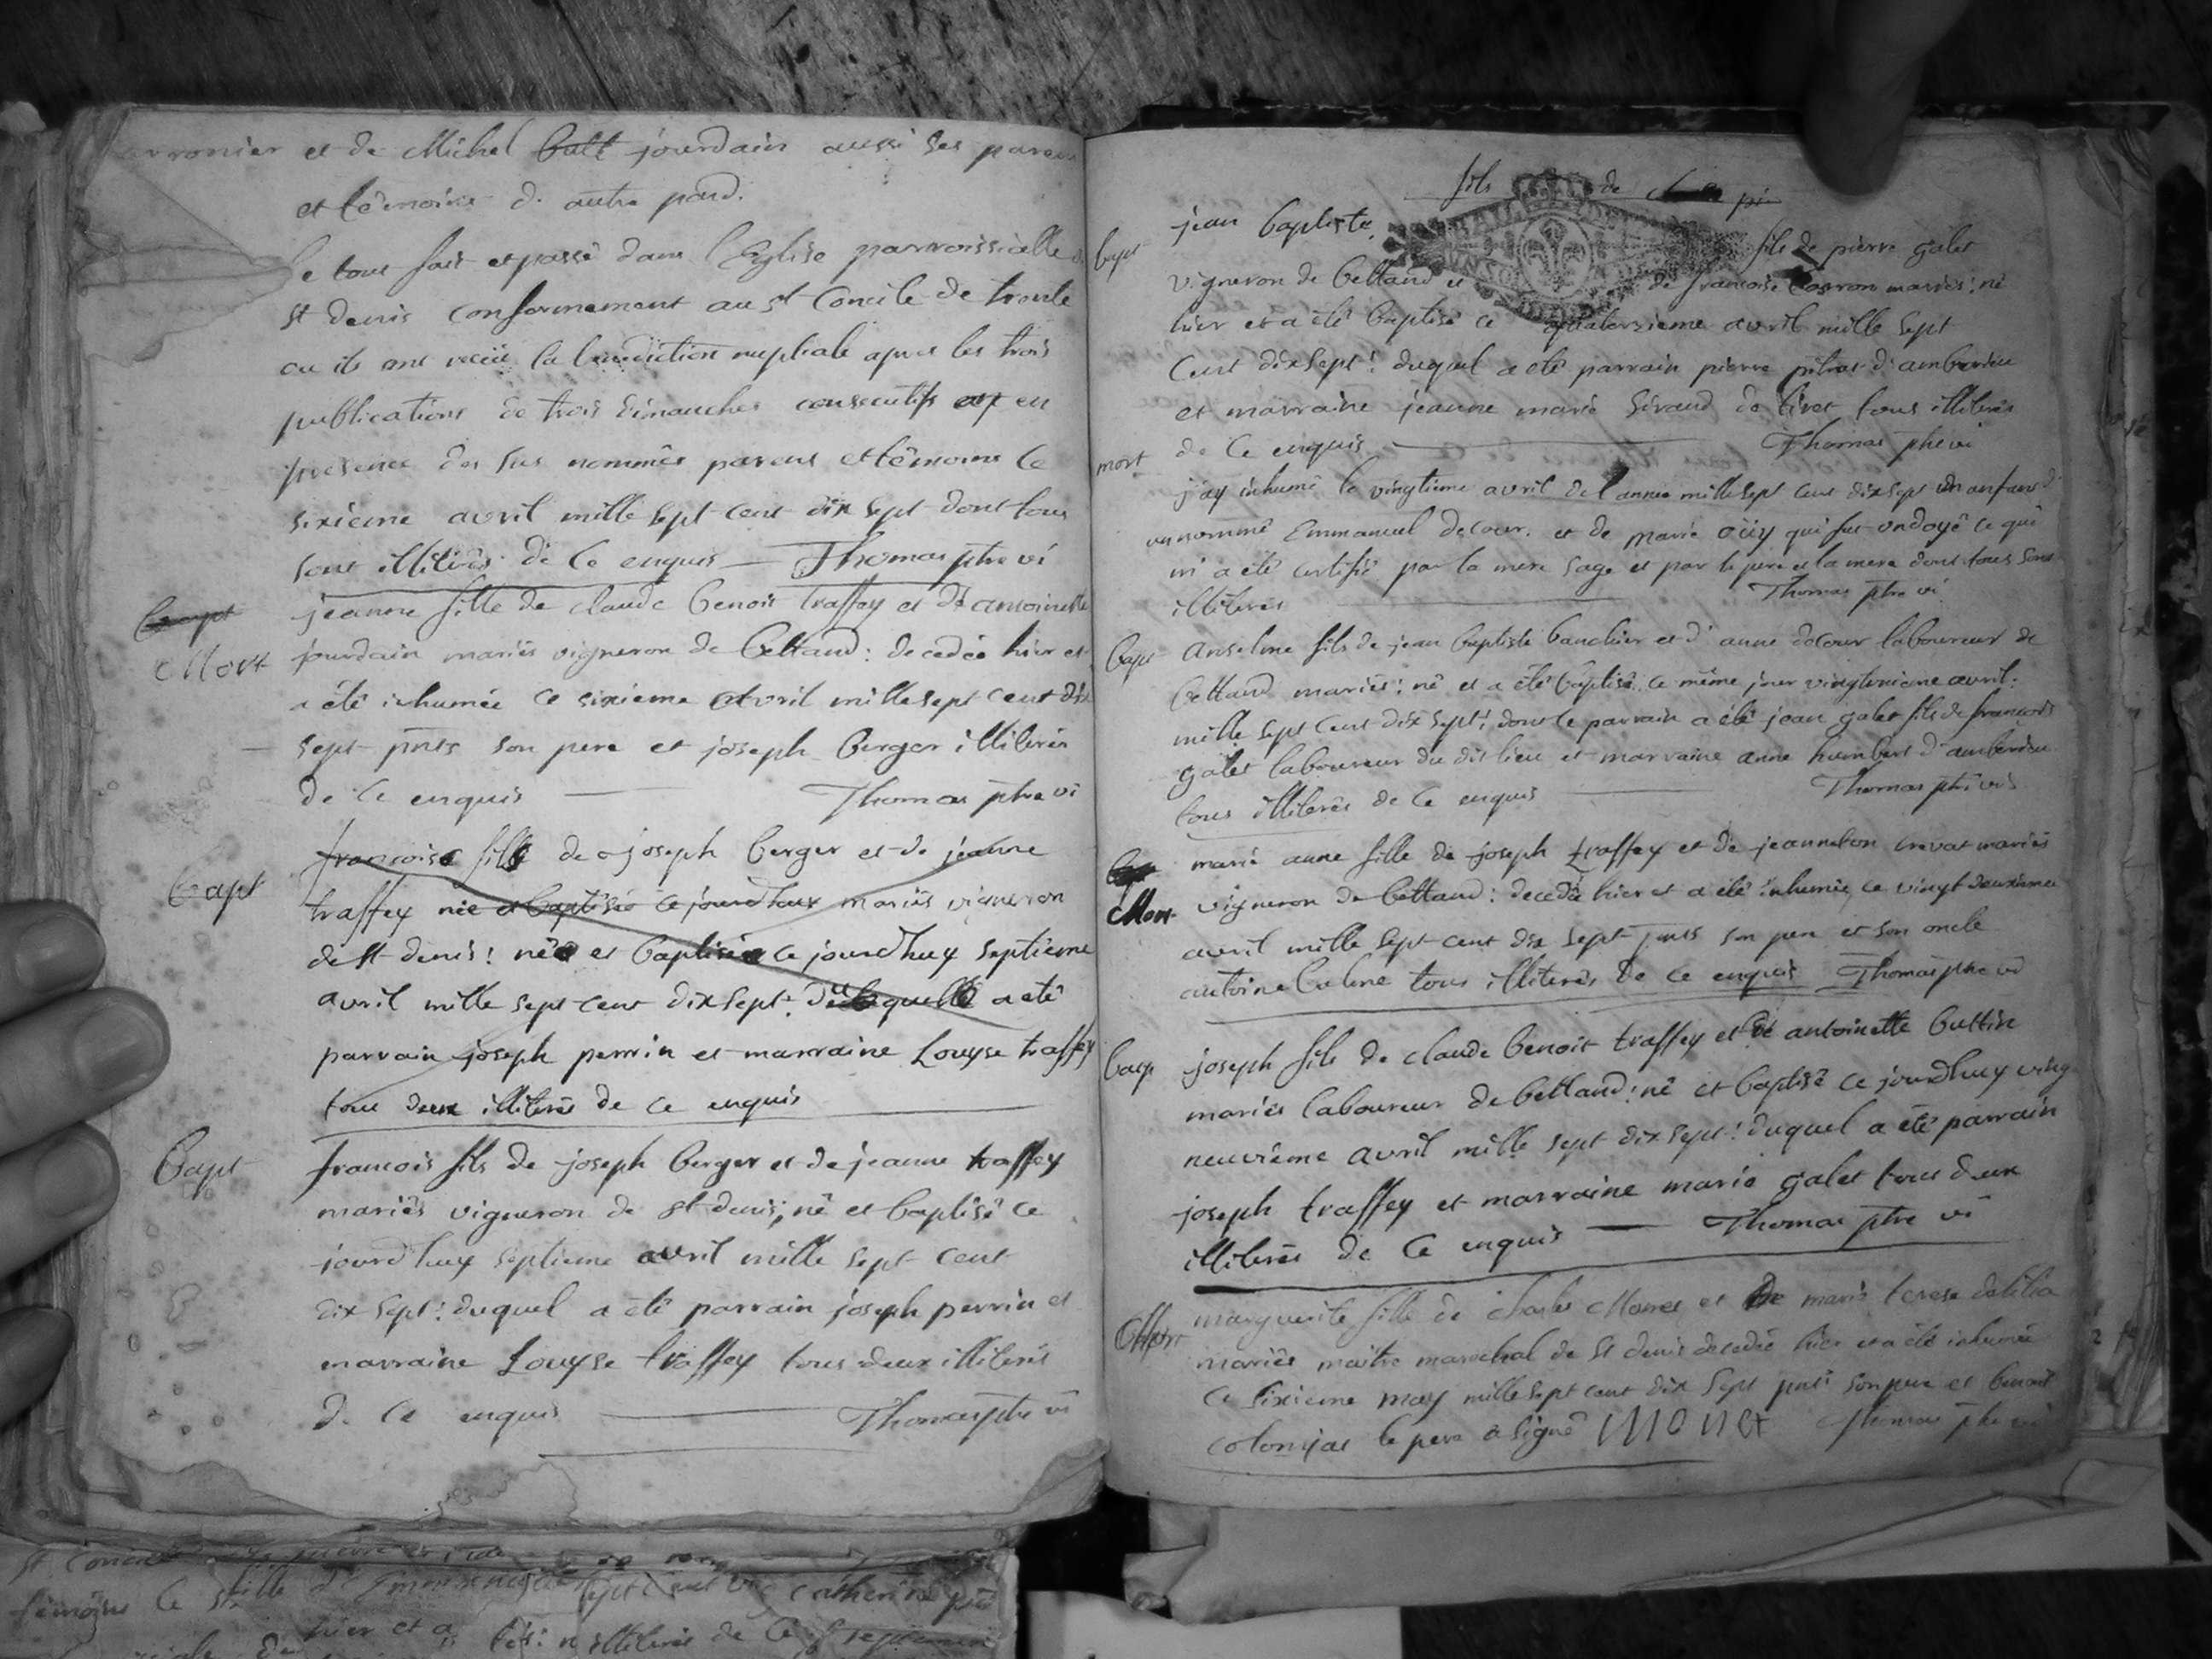 et de Michel batt jourdain aussi ses parens
et têmoins d. autre pard.
le tout fait et passé dans l'Eglise parroissialle d
st denis conformement au st Concile de trente
ou ils ont reciie la benediction nuptiale apres les trois
publications de trois dimanches consecutifs en
presence des sus nommês parens et têmoins ce
sixiême avril mille sept cent dix sept dont tous
sont illiterês de ce enquis — Thomas ptre vi
Mort
jeanne fille de claude benoit traffey et d'antoinette
jourdain mariês vigneron de bettand: decedêe hier et
a été inhumée ce sixieme avril mille sept cent dix
sept pnts son pere et joseph berger illiterês
de ce enquis — Thomas ptre vi
Bapt
francoise fille de joseph berger et de jeanne
traffey née et baptisée ce jourd'huy mariês vigneron
de st denis: née et baptisée ce jourd'huy septiême
avril mille sept cent dix sept: a eté
parrain joseph perrin et marraine Louyse traffey
tous deux illiterês de ce enquis
Bapt
francois fils de joseph berger et de jeanne traffey
mariês vigneron de st denis; né et baptisé ce
jourd'huy septieme avril mille sept cent
dix sept: duquel a été parrain joseph perrin et
marraine Louyse traffey tous deux illiterês
de ce enquis — Thomas ptre vi
fils de
Bapt
jean baptiste fils de pierre galet
vigneron de bettand et de francoise mariês: né
hier et a été baptisé ce quatorzieme avril mille sept
cent dix sept: duquel a été parrain pierre d'amberieu
et marraine jeanne marie de tous illiterês
de ce enquis — Thomas ptre vi
mort
j'ay inhumé le vingtieme avril de l'annee mille sept cent dix sept un anfant d
un nommé Emmanuel decour. et de marie qui fut ondoyé ce qui
m'a été certifié par la mere sage et par le pere et la mere dont tous sont
illiterês — Thomas ptre vi
Bapt
Anselme fils de jean baptiste banchier et d'anne decour laboureur de
bettand mariês: né et a été baptisé ce même jour avril:
mille sept cent dix sept: dont le parrain a été jean galet fils de francois
galet laboureur du dit lieu et marraine anne humbert d'amberieu
tous illiterês de ce enquis — Thomas ptre vi
Mort
marie anne fille de joseph traffey et de jeanneton crevat mariês
vigneron de bettand: decedêe hier et a été inhumée ce vingt deuxieme
avril mille sept cent dix sept pnts son pere et son oncle
antoine tous illiterês de ce enquis Thomas ptre vi
Bap
joseph fils de claude benoit traffey et de antoinette buttin
mariês laboureur de bettand: né et baptisé ce jourd'huy ving
neuviême avril mille sept dix sept: duquel a été parrain
joseph traffey et marraine marie galet tous deux
illiterês de ce enquis — Thomas ptre vi
Mort
marguerite fille de charles Monet et de marie terese
mariês maitre marechal de st denis decedée hier et a été inhumée
ce sixieme may mille sept cent dix sept pnts son pere et benoit
le pere a signé Monet Thomas ptre vi
st
témoins ce fille d' sept cent catherine
hier et a illiterés de ce